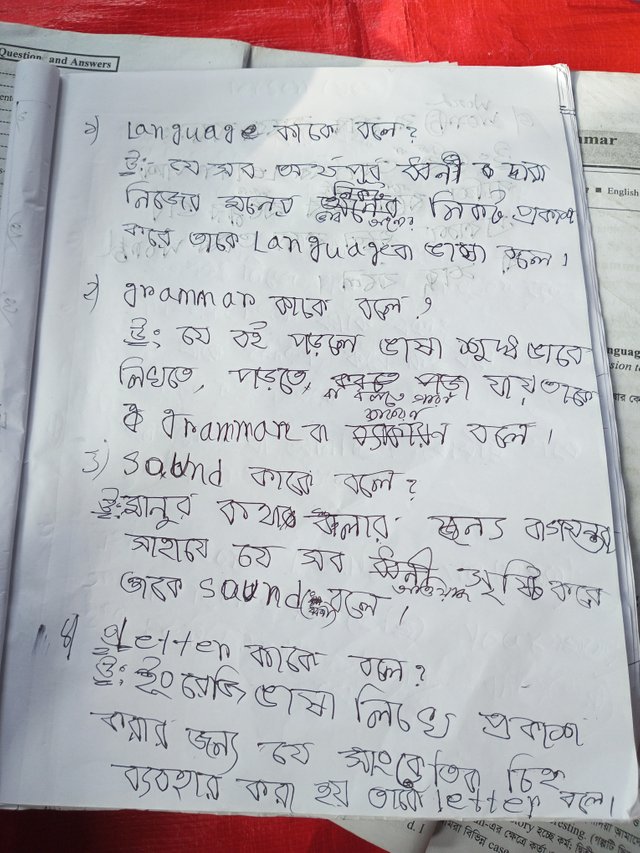 Question and Answers
mar
■ English
১) Language কাকে বলে?
উ: যে সব অর্থপূর্ণ ধ্বনী দ্বারা
নিজের মনের ভাব অন্যের নিকট প্রকাশ
করে তাকে Language বা ভাষা বলে।
২) grammar কাকে বলে?
উ: যে বই পড়লে ভাষা শুদ্ধ ভাবে
লিখতে, পড়তে, বা বলতে পারা যায় তাকে
grammar বা ব্যাকরণ বলে।
৩) Sound কাকে বলে?
উ: মানুর কথা বলার জন্য বাগযন্ত্রর
সাহায্যে যে সব আওয়াজ সৃষ্টি করে
তাকে sound বলে।
৪) Letter কাকে বলে?
উ: ইংরেজি ভাষা লিখে প্রকাশ
করার জন্য যে সাংকেতিক চিহ্ন
ব্যবহার করা হয় তাকে letter বলে।